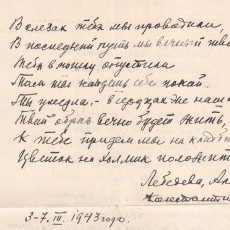 В слезах тебя мы проводили,
В последний путь мы вечный
Тебя в могилу опустили
Там ты найдешь себе покой.
Ты умерла, - в сердцах же наш
Твой образ вечно будет жить,
К тебе придем мы на кладб
Цветок на холмик положит
Лебедева, Ал
Константин
3-7. III. 1943 года.